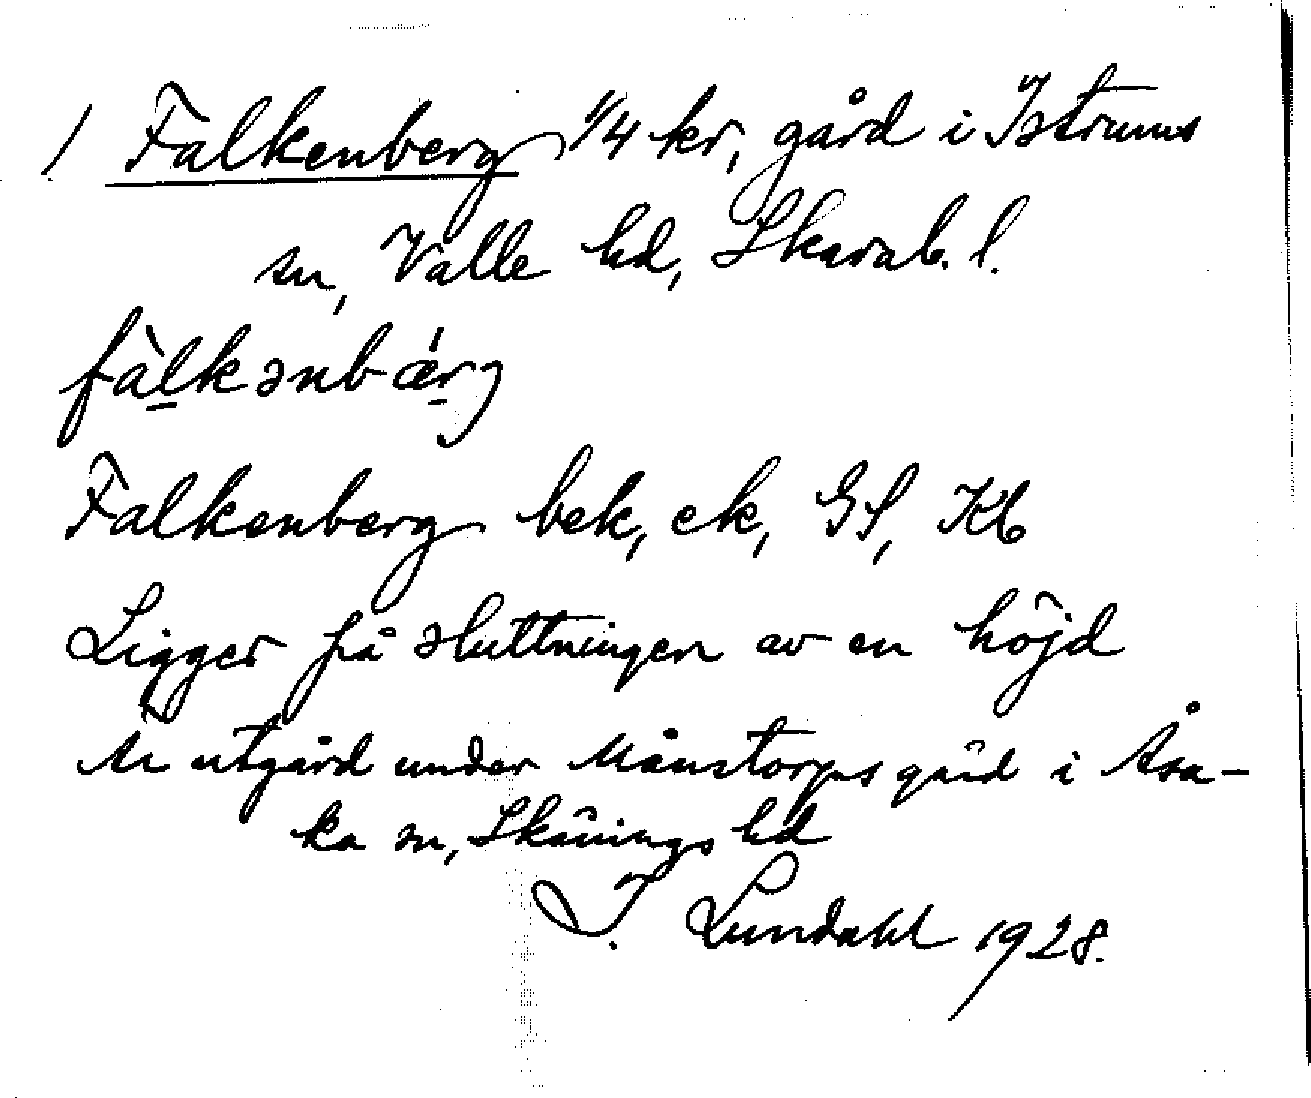 1 Falkenberg 1/4 kr, gård i Istrums
sn, Valle hd, Skarab. l.
fàlkənbǽrj
Falkenberg bek, ek, GS, Kb
Ligger på sluttningen av en höjd
Är utgård under Månstorps gård i Åsa-
ka sn, Skånings hd
I. Lundahl 1928.